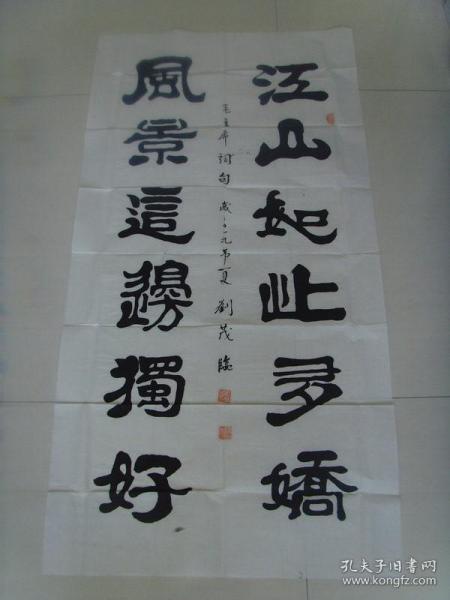 江山如此多嬌
風景這邊獨好
毛主席詞句 歲一九 夏 劉茂臨
孔夫子旧书网
www.kongfz.com